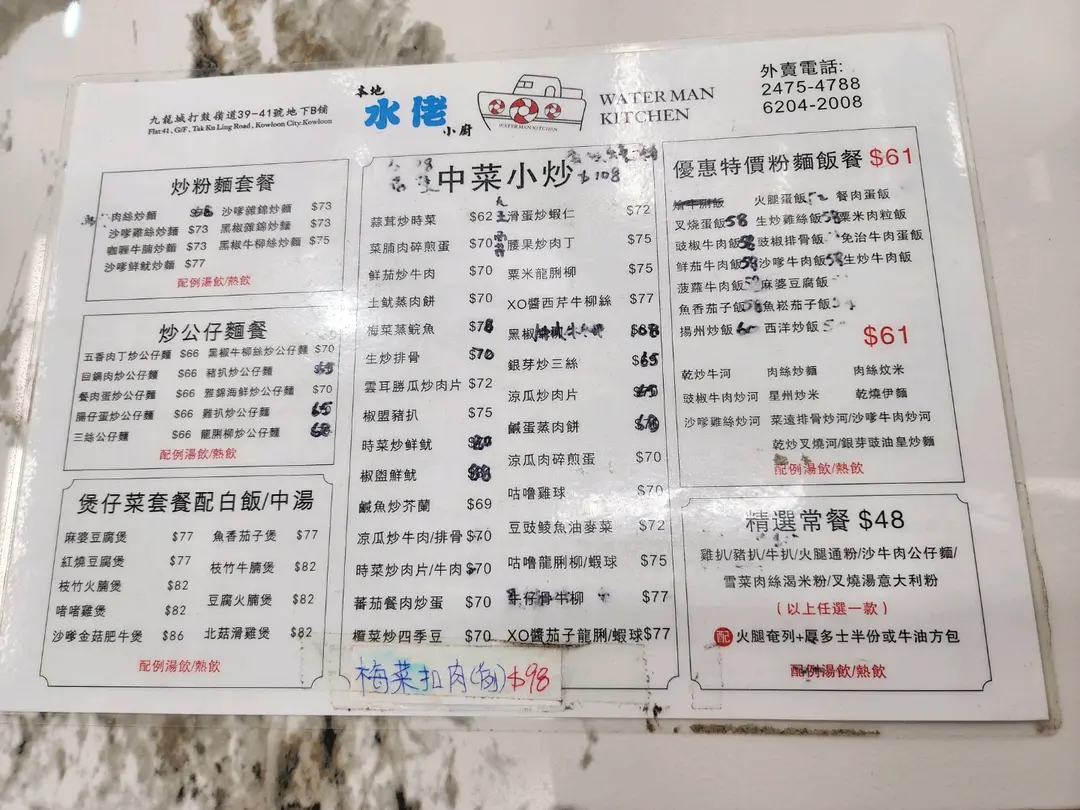 九龍城打鼓嶺道39-41號地下B舖
Flat 41, G/F, Tak Ku Ling Road, Kowloon City.Kowloon
本地
水佬
小廚
WATERMAN KITCHEN
WATER MAN
KITCHEN
外賣電話:
2475-4788
6204-2008
炒粉麵套餐
肉絲炒麵 沙嗲雜錦炒麵 $73
沙嗲雞絲炒麵 $73 黑椒雜錦炒麵 $73
咖喱牛腩炒麵 $73 黑椒牛柳絲炒麵 $75
沙嗲鮮魷炒麵 $77
配例湯飲/熱飲
炒公仔麵餐
五香肉丁炒公仔麵 $66 黑椒牛柳絲炒公仔麵 $70
回鍋肉炒公仔麵 $66 豬扒炒公仔麵 $65
餐肉蛋炒公仔麵 $66 雅錦海鮮炒公仔麵 $70
腸仔蛋炒公仔麵 $66 雞扒炒公仔麵 65
三絲公仔麵 $66 龍脷柳炒公仔麵 68
配例湯飲/熱飲
煲仔菜套餐配白飯/中湯
麻婆豆腐煲 $77 魚香茄子煲 $77
紅燒豆腐煲 $77
枝竹牛腩煲 $82
枝竹火腩煲 $82
豆腐火腩煲 $82
啫啫雞煲 $82
沙嗲金菇肥牛煲 $86 北菇滑雞煲 $82
配例湯飲/熱飲
中菜小炒
$108
蒜茸炒時菜 $62 滑蛋炒蝦仁 $72
菜脯肉碎煎蛋 $70 腰果炒肉丁 $75
鮮茄炒牛肉 $70 粟米龍脷柳 $75
土魷蒸肉餅 $70 XO醬西芹牛柳絲 $77
梅菜蒸鯇魚 $78 黑椒 $88
生炒排骨 $70 銀芽炒三絲 $65
雲耳勝瓜炒肉片 $72 涼瓜炒肉片
椒盟豬扒 $75 鹹蛋蒸肉餅
時菜炒鮮魷 $80 涼瓜肉碎煎蛋 $70
椒盟鮮魷 咕嚕雞球 $70
鹹魚炒芥蘭 $69 豆豉鯪魚油麥菜 $72
涼瓜炒牛肉/排骨 $70 咕嚕龍脷柳/蝦球 $75
時菜炒肉片/牛肉 $70 牛仔骨牛柳 $77
蕃茄餐肉炒蛋 $70 XO醬茄子龍脷/蝦球$77
欖菜炒四季豆 $70
梅菜扣肉 $98
優惠特價粉麵飯餐 $61
燴牛脷飯 火腿蛋飯 餐肉蛋飯
叉燒蛋飯58 生炒雞絲飯58 粟米肉粒飯
豉椒牛肉飯58 豉椒排骨飯 免治牛肉蛋飯
鮮茄牛肉飯58 沙嗲牛肉飯58 生炒牛肉飯
菠蘿牛肉飯 麻婆豆腐飯
魚香茄子飯58 魚崧茄子飯
揚州炒飯60 西洋炒飯
$61
乾炒牛河 肉絲炒麵 肉絲炆米
豉椒牛肉炒河 星州炒米 乾燒伊麵
沙嗲雞絲炒河 菜遠排骨炒河/沙嗲牛肉炒河
乾炒叉燒河/銀芽豉油皇炒麵
配例湯飲/熱飲
精選常餐 $48
雞扒/豬扒/牛扒/火腿通粉/沙牛肉公仔麵/
雪菜肉絲渴米粉/叉燒湯意大利粉
(以上任選一款)
配 火腿奄列+厚多士半份或牛油方包
配例湯飲/熱飲